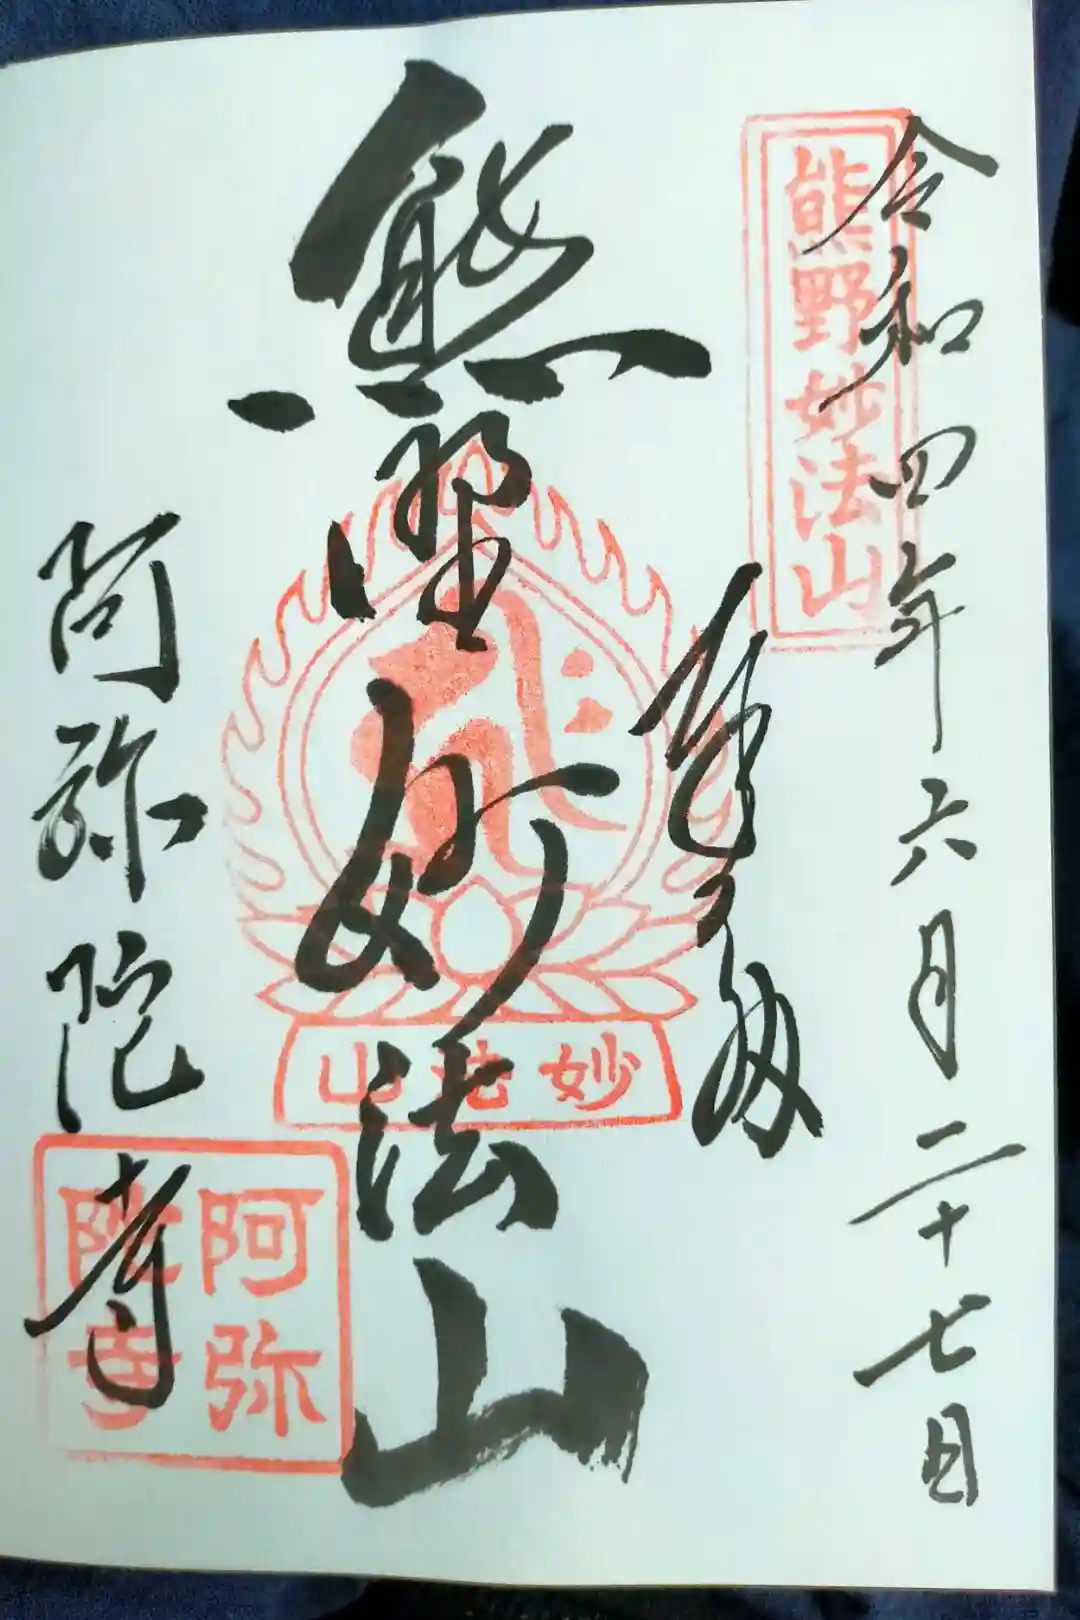 熊野妙法山
令和四年六月二十七日
奉拝
熊野妙法山
妙法山
阿弥陀寺
阿弥陀寺